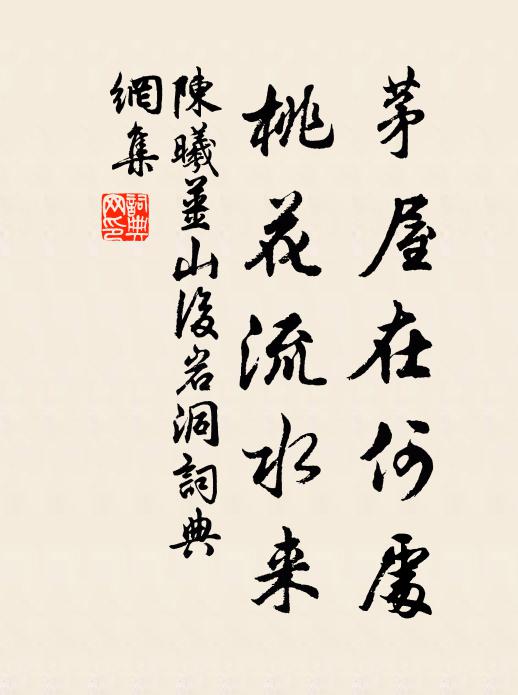 茅屋在何處
桃花流水来
陳曦薑山後岩洞詞典
網集
詞典网印